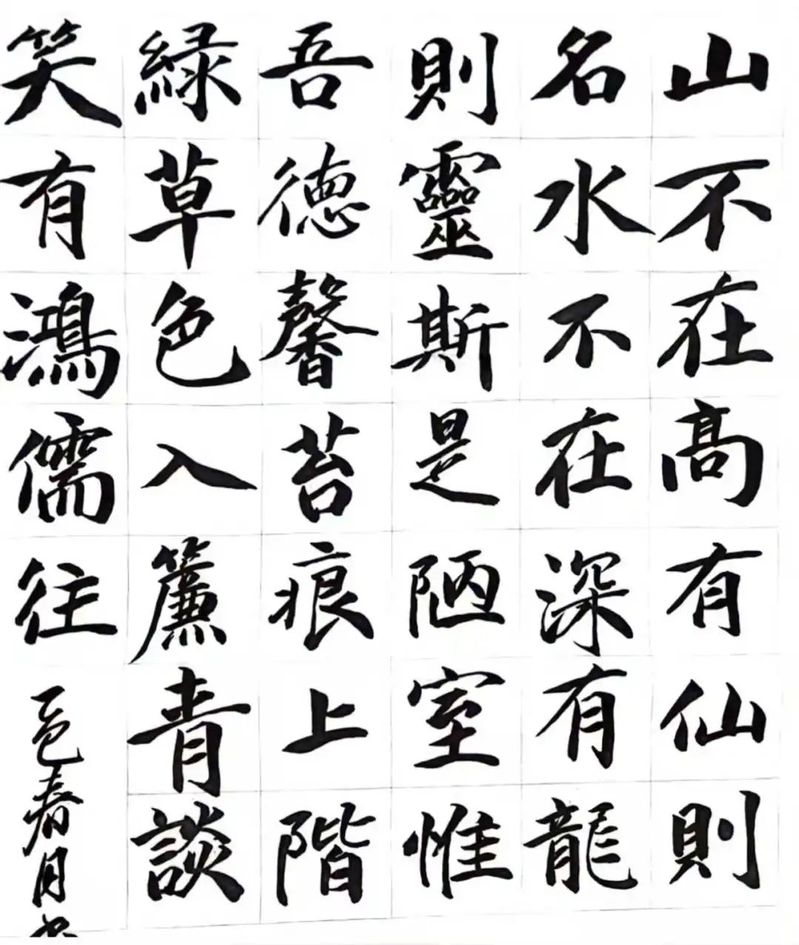 山不在高有仙則
名水不在深有龍
則靈斯是陋室惟
吾德馨苔痕上階
緑草色入簾青談
笑有鴻儒往
春月